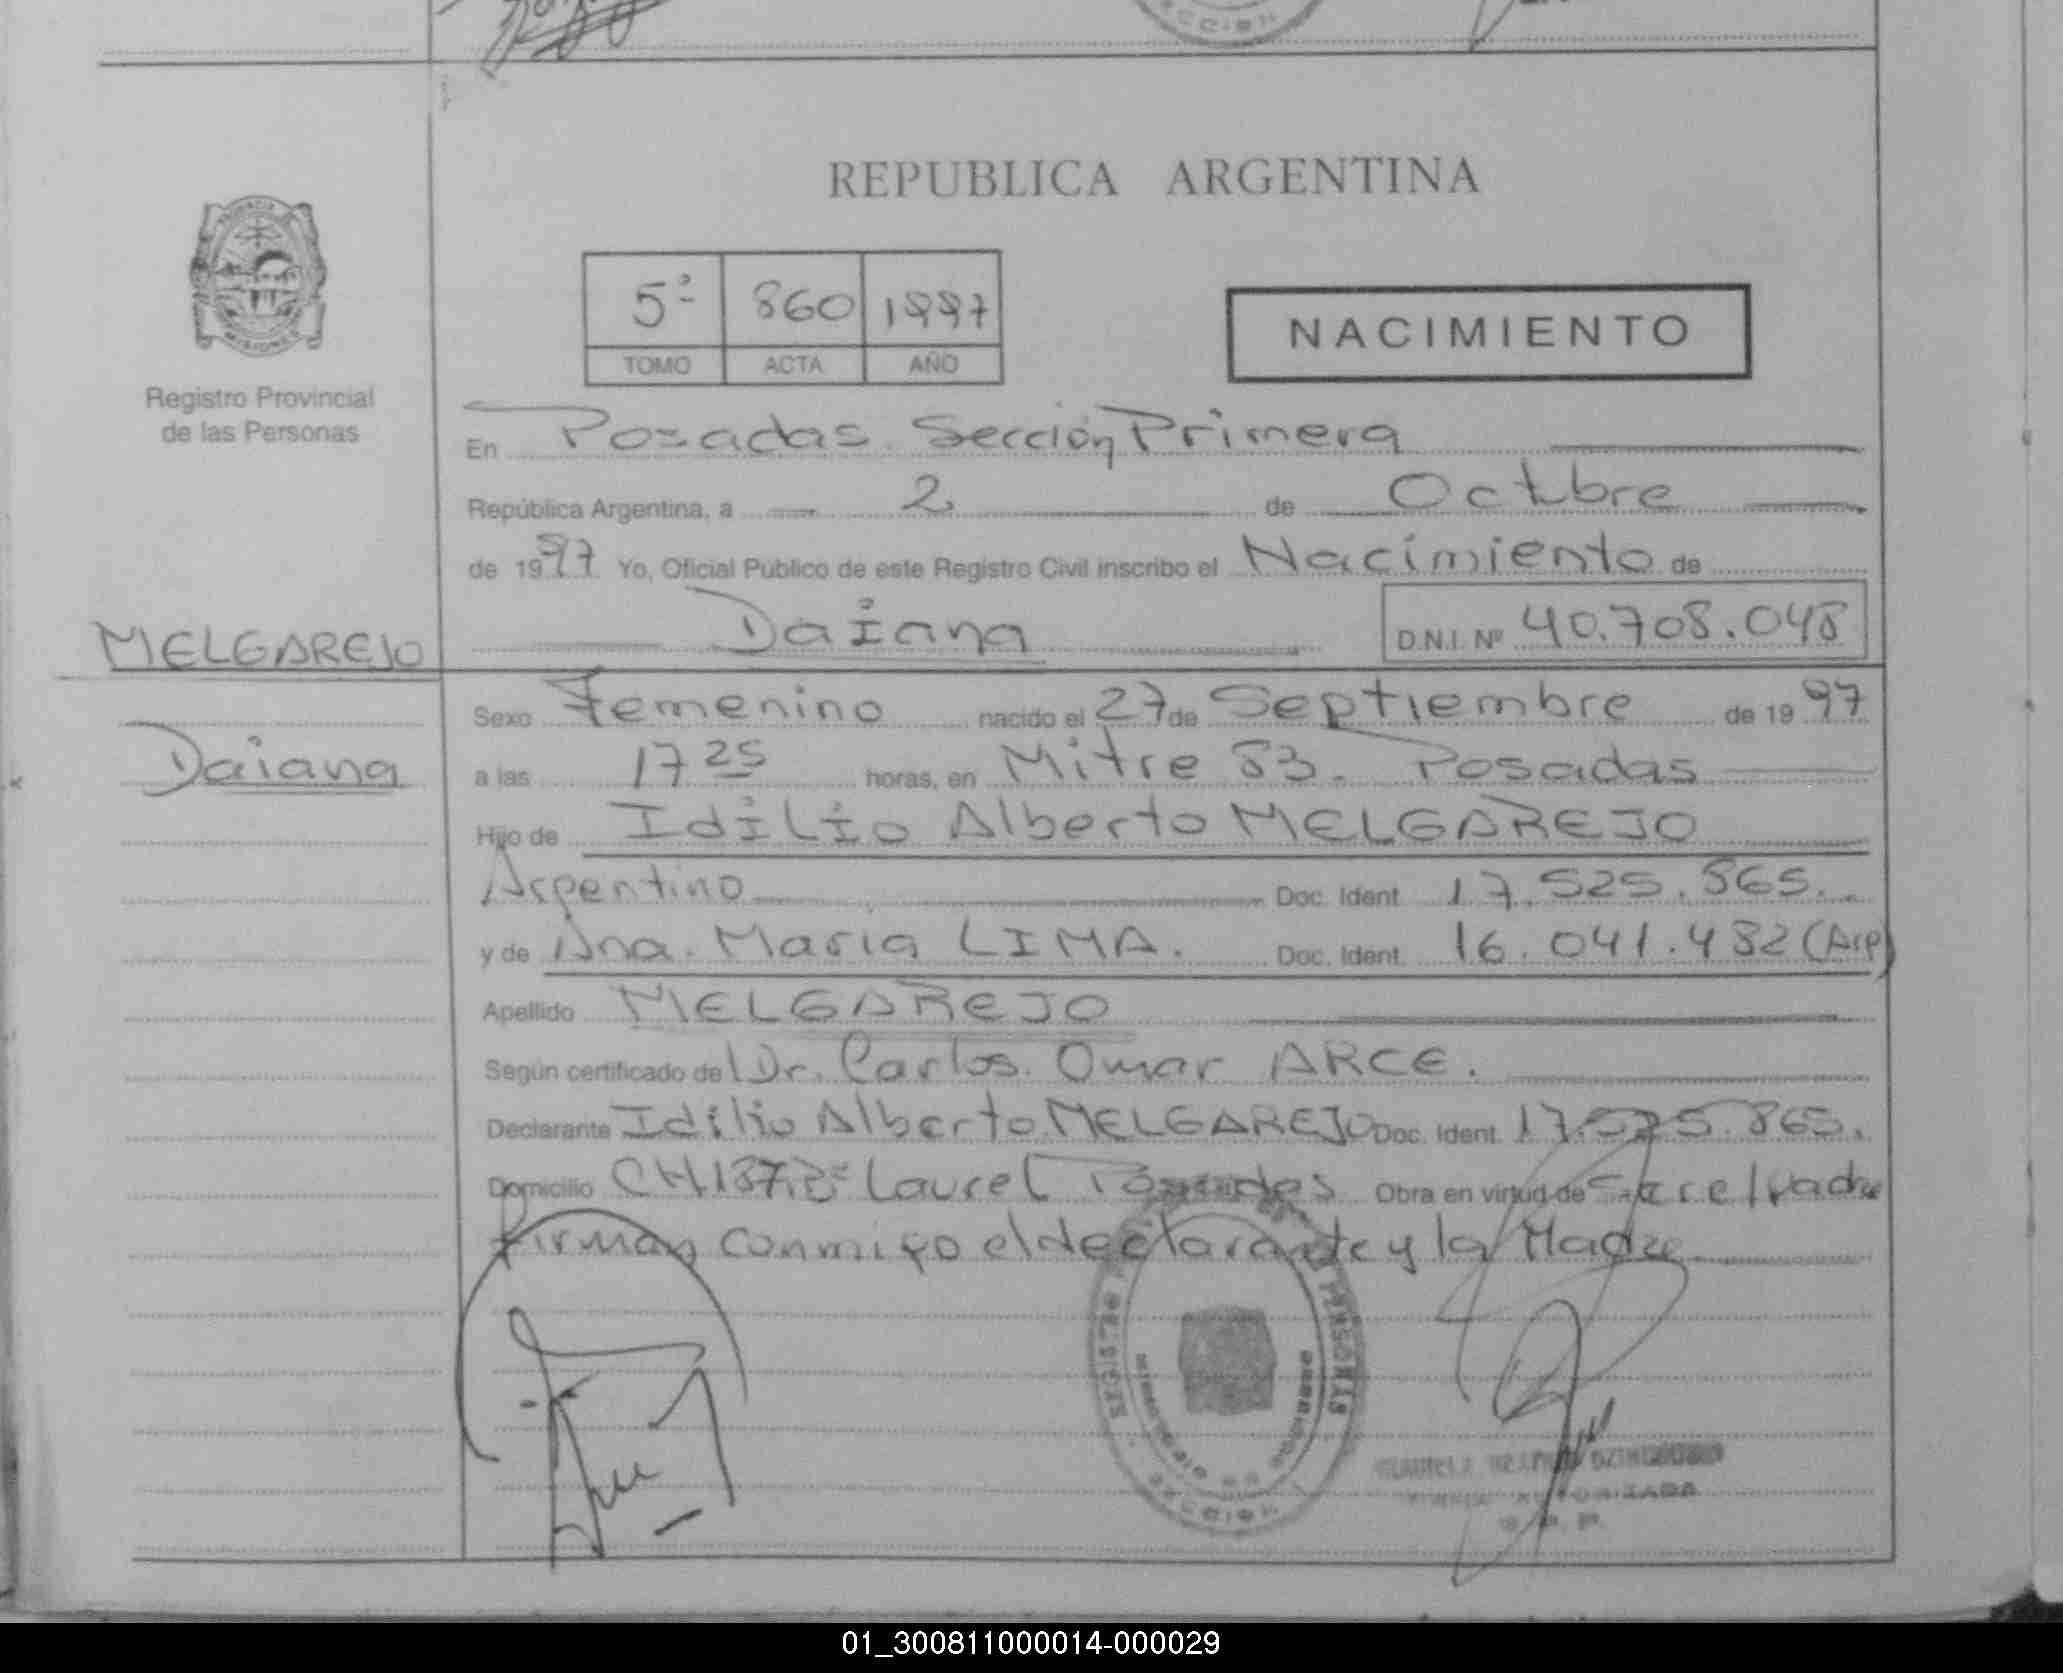 REPUBLICA ARGENTINA
PROVINCIA
MISIONES
Registro Provincial
de las Personas
5º 860 1997
TOMO ACTA AÑO
NACIMIENTO
En Posadas. Sección Primera
República Argentina, a 2 de Octubre
de 1997 Yo, Oficial Público de este Registro Civil inscribo el Nacimiento de
Daiana D.N.I. Nº 40.708.048
MELGAREJO
Daiana
Sexo Femenino nacido el 27 de Septiembre de 1997
a las 17 25 horas, en Mitre 83. Posadas
Hijo de Idilio Alberto MELGAREJO
Argentino Doc. Ident. 17.525.865.
y de Ana. Maria LIMA. Doc. Ident. 16.041.482 (Arg)
Apellido MELGAREJO
Según certificado del Dr. Carlos. Omar ARCE.
Declarante Idilio Alberto MELGAREJO Doc. Ident. 17.525.865.
Domicilio CH 187, Bº Laurel Posadas Obra en virtud de Ser el padre
firman conmigo el declarante y la Madre
REGISTRO PERSONAS
SECCION
AUTORIZADA
01_300811000014-000029